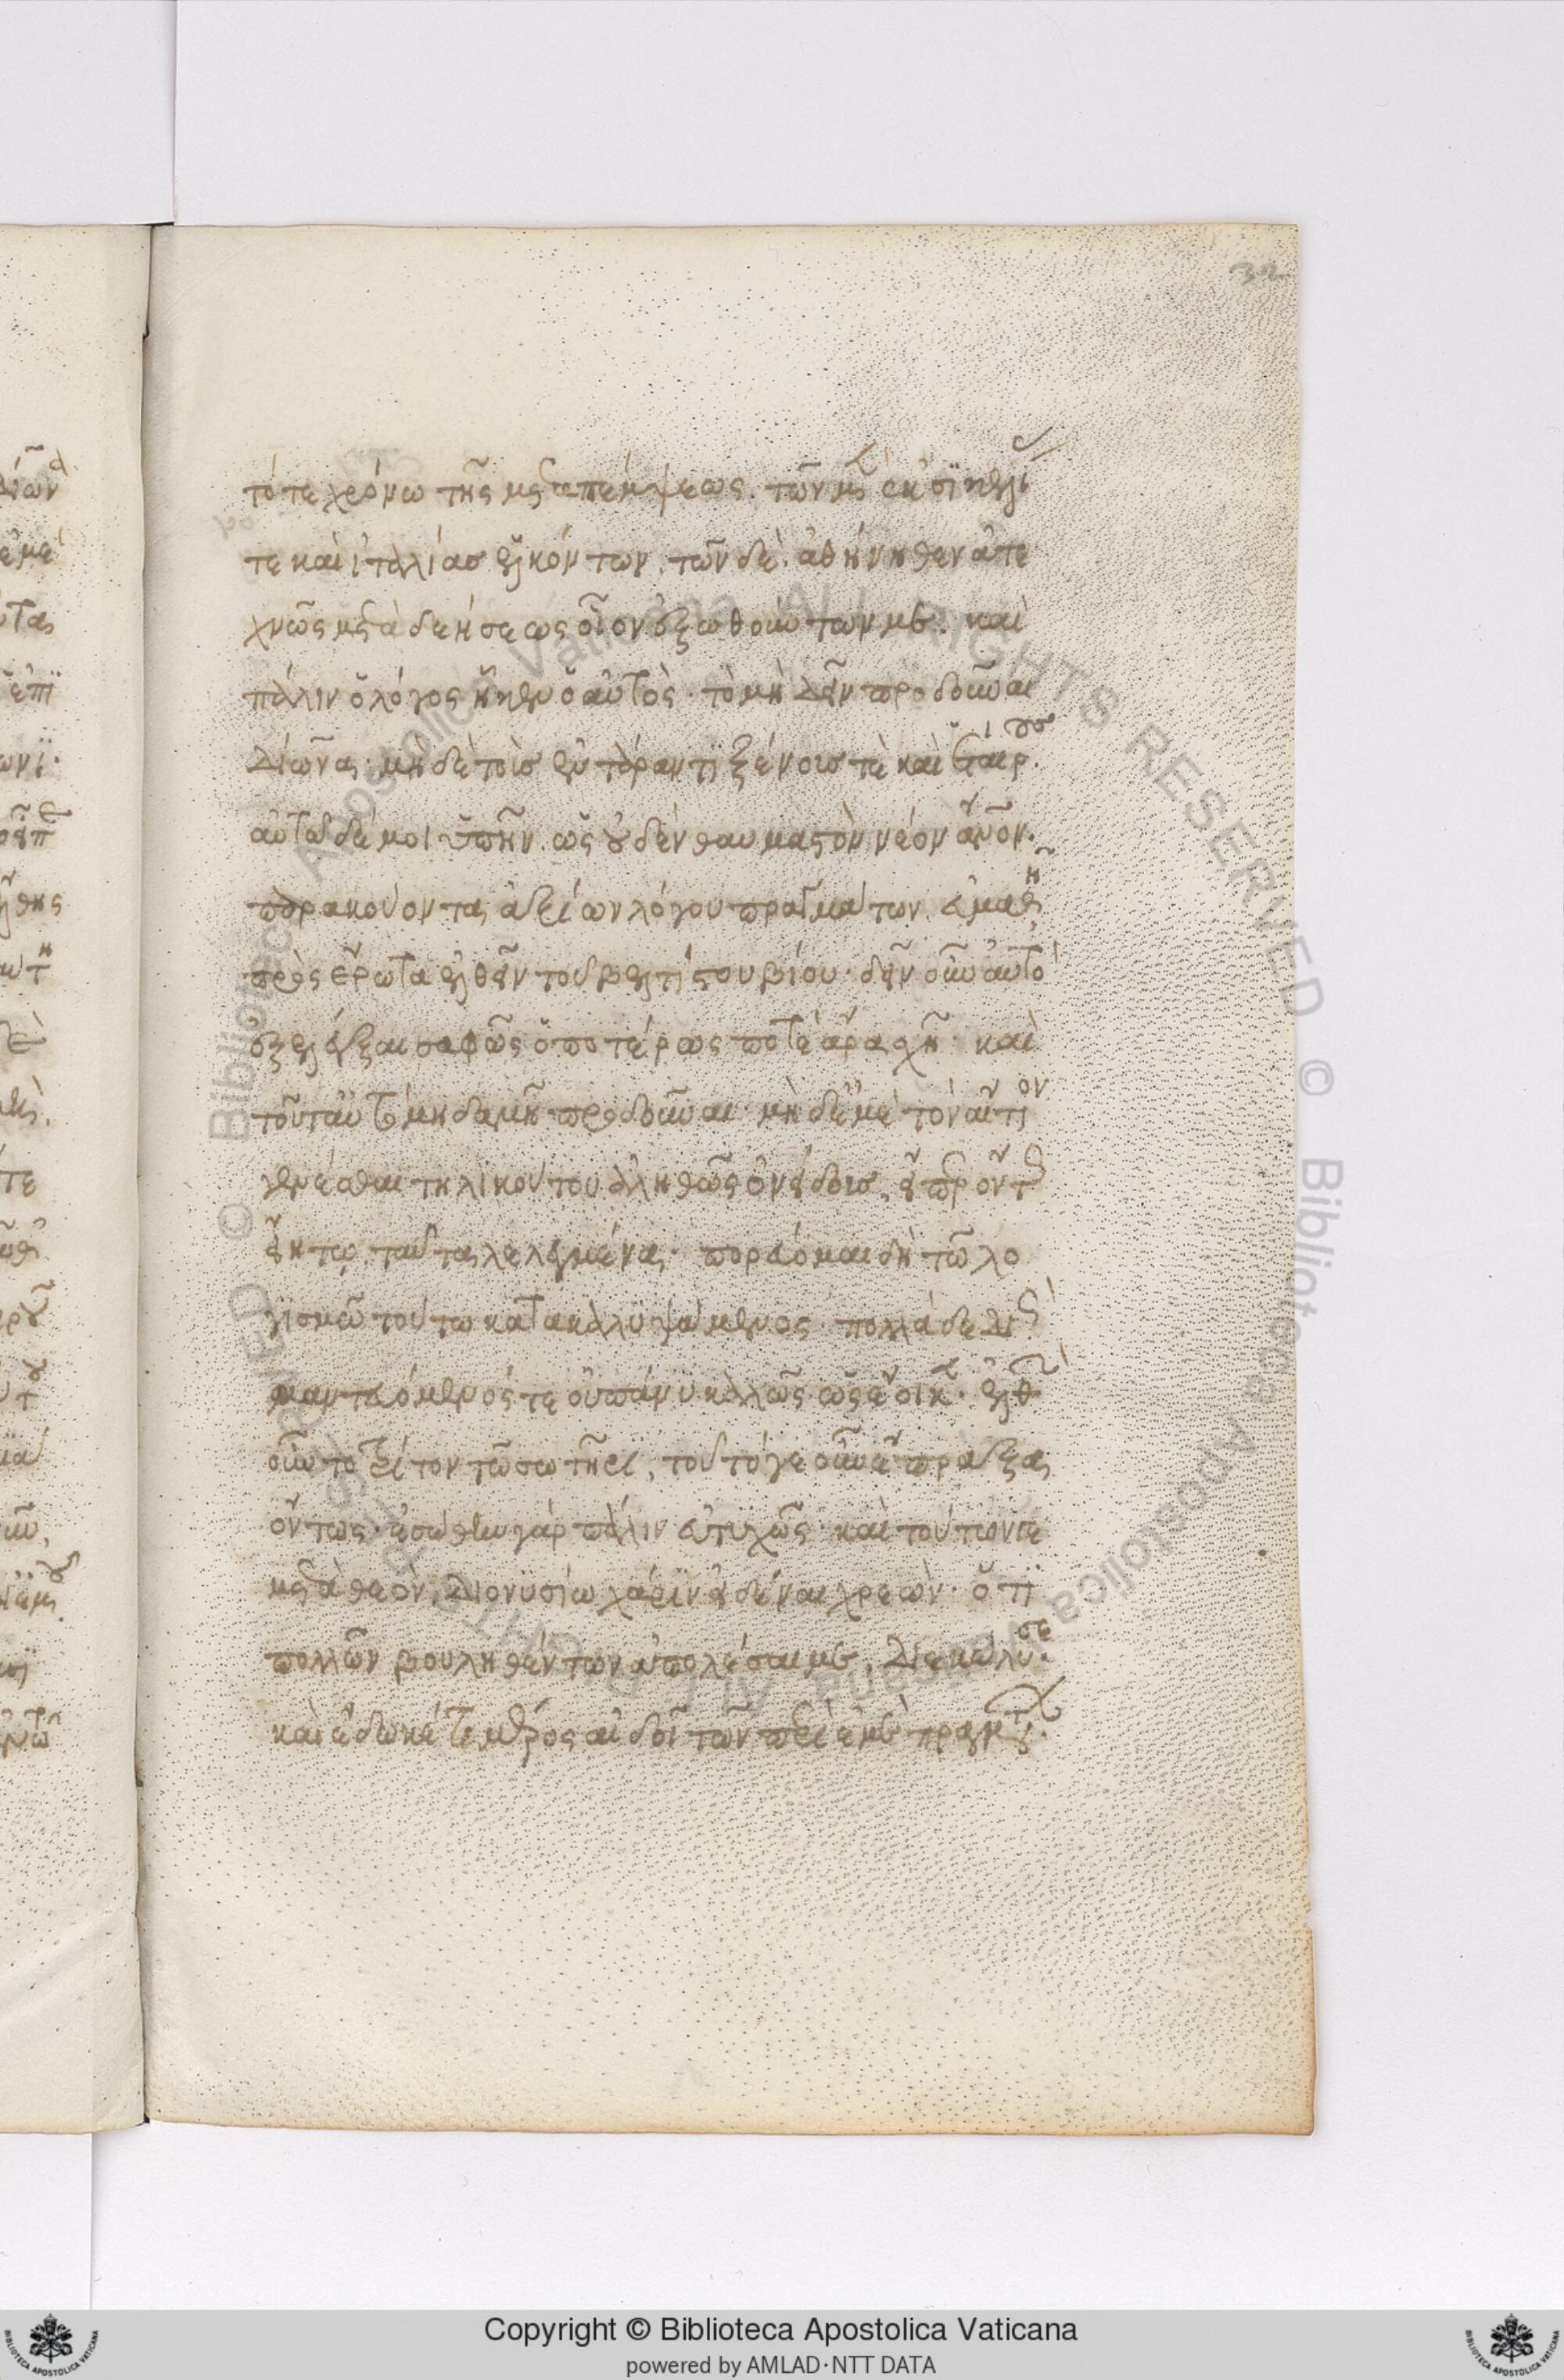 32
τότε χρόνω τῆς μεταπέμψεως. τῶν μὲν ἐκ σϊκελί
τε καὶ ἰταλίασ ἑλκόντων. τῶν δὲ ἀθήνηθεν ἀτε
χνῶς μετὰ δεήσεως οἷον ἐξωθούντων με. καὶ
πάλιν ὁ λόγος ἧκεν ὁ αὐτὸς. τὸ μὴ δεῖν προδοῦναι
δίωνα. μηδὲ τοὺσ ἐν τάραντϊ ξένουσ τὲ καὶ ἑταίρουσ.
αὐτῶ δέ μοι ὑπῆν. ὡς οὐδὲν θαυμαστὸν νέον ἄνον.
παρακούοντα ἀξίων λόγου πραγμάτων. εὐμαθῆ
πρὸς ἔρωτα ἐλθεῖν τοῦ βελτίστου βίου. δεῖν οὖν αὐτὸ
ἐξελέγξαι σαφῶς ὁποτέρως ποτὲ ἄρα ἔχῃ. καὶ
τοῦτ' αὐτὸ μηδαμῆ προδοῦναι. μὴδ' ἐμὲ τὸν αἴτιον
γενέσθαι τηλικούτου ἀληθῶς ὀνείδουσ. εἴπερ ὄντως
εἴη τῳ ταῦτα λελεγμένα. πορεύομαι δὴ τῶ λο
γϊσμῶ τούτω κατακαλυψάμενος. πολλὰ δεδιὼς
μαντευόμενός τε οὐ πάνυ καλῶς ὡς ἔοικεν. ἐλθὼν
οὖν τὸ τρίτον τῶ σωτῆρϊ. τοῦτό γε οὖν ἔπραξα
ὄντως. ἐσώθην γὰρ πάλιν εὐτυχῶς. καὶ τούτων γε
μετὰ θεὸν. διονυσίω χάρϊν εἰδέναι χρεὼν. ὅτϊ
πολλῶν βουληθέντων ἀπολέσαι με. διεκώλυσε.
καὶ ἔδωκέ τι μέρος αἰδοῖ τῶν περὶ ἐμὲ πραγμάτων.
Copyright © Biblioteca Apostolica Vaticana
powered by AMLAD·NTT DATA